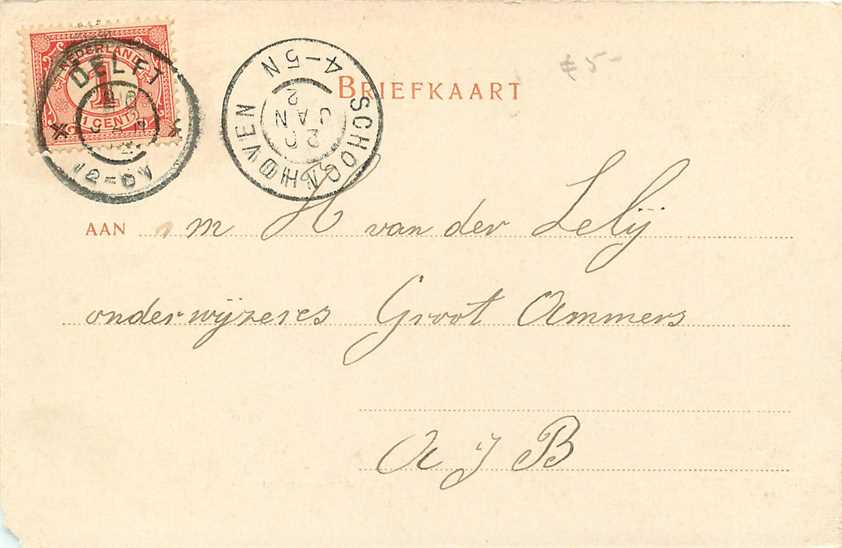 NEDERLAND
1
1 CENT
DELFT
12-1N
SCHOONHOVEN
4-5N
20
JAN
2
BRIEFKAART
5-
AAN m H van der Lelij
onderwijzeres Groot Ammers
A J B